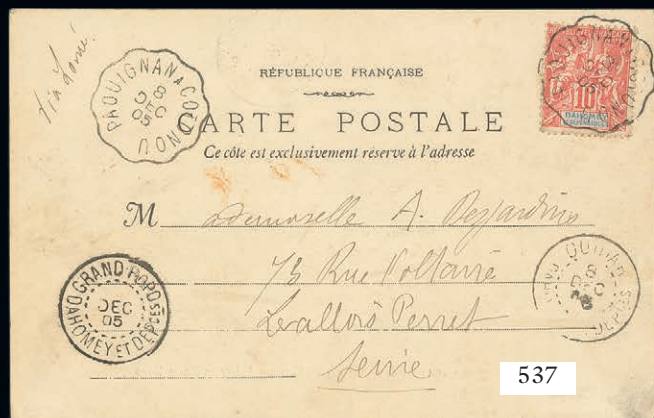 Via Lomé
PAOUIGNAN A COTONOU
8
DEC
05
RÉPUBLIQUE FRANÇAISE
CARTE POSTALE
Ce côté est exclusivement réservé à l'adresse
10
DAHOMEY
M ademoiselle A. Desjardins
73 Rue Voltaire
Levallois Perret
Seine
GRAND-POPO
DEC
05
DAHOMEY ET DEPCES
OUIDAH
8
DEC
537